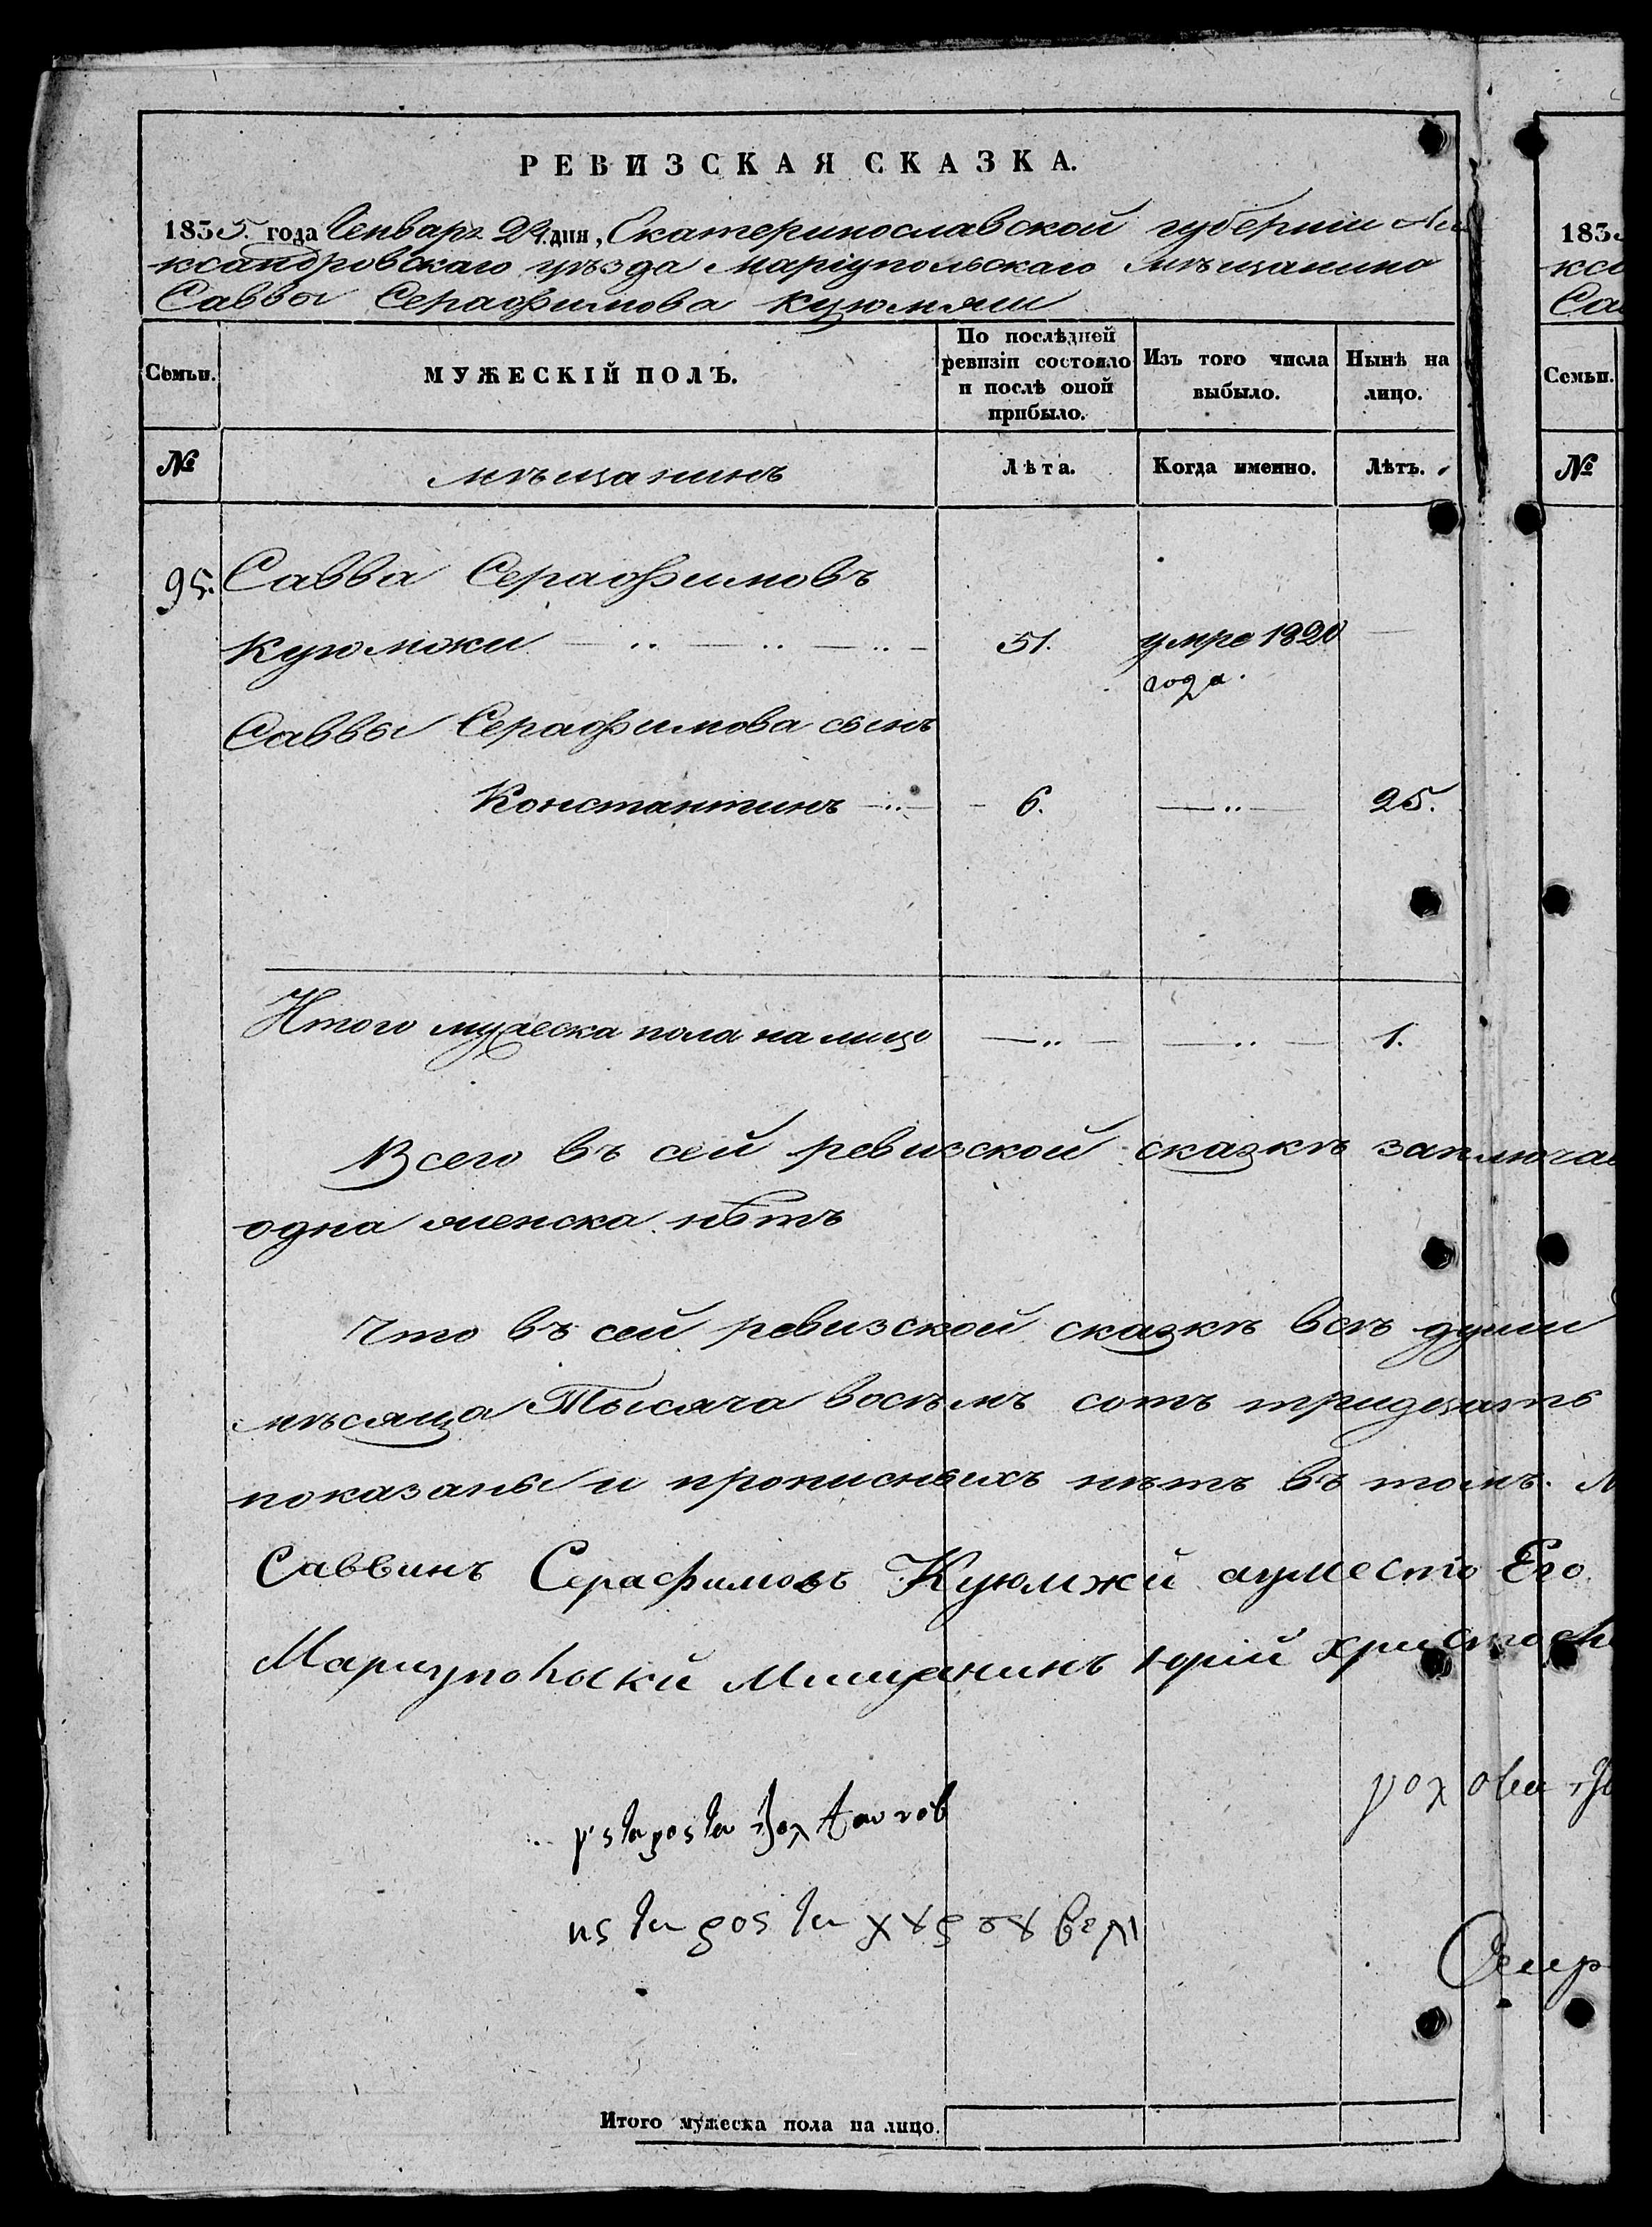 РЕВИЗСКАЯ СКАЗКА.
1835. года Генваря 24 дня, Екатеринославской губернии Але
ксандровскаго уѣзда Маріупольскаго мѣщанина
Саввы Серафимова
Семьи.
МУЖЕСКІЙ ПОЛЪ.
По послѣдней ревизіи состояло и послѣ оной прибыло.
Изъ того числа выбыло.
Нынѣ на лицо.
№
мѣщанинъ
Лѣта.
Когда именно.
Лѣтъ.
95. Савва Серафимовъ
Куюмжи 51. умре 1820
года.
Саввы Серафимова сынъ
Константинъ 6. 25.
Итого мужеска пола на лицо 1.
Всего въ сей ревизской сказкѣ заключае
одна женска нѣтъ
Что въ сей ревизской сказкѣ всѣ души
мѣсяца Тысяча восѣмъ сотъ тридцать
показаны и прописныхъ нѣтъ въ томъ. М
Саввинъ Серафимовъ Куюмжи Его
Мещанинъ Юрій
Итого мужеска пола на лицо.
183
ксс
Сав
Семьи.
№